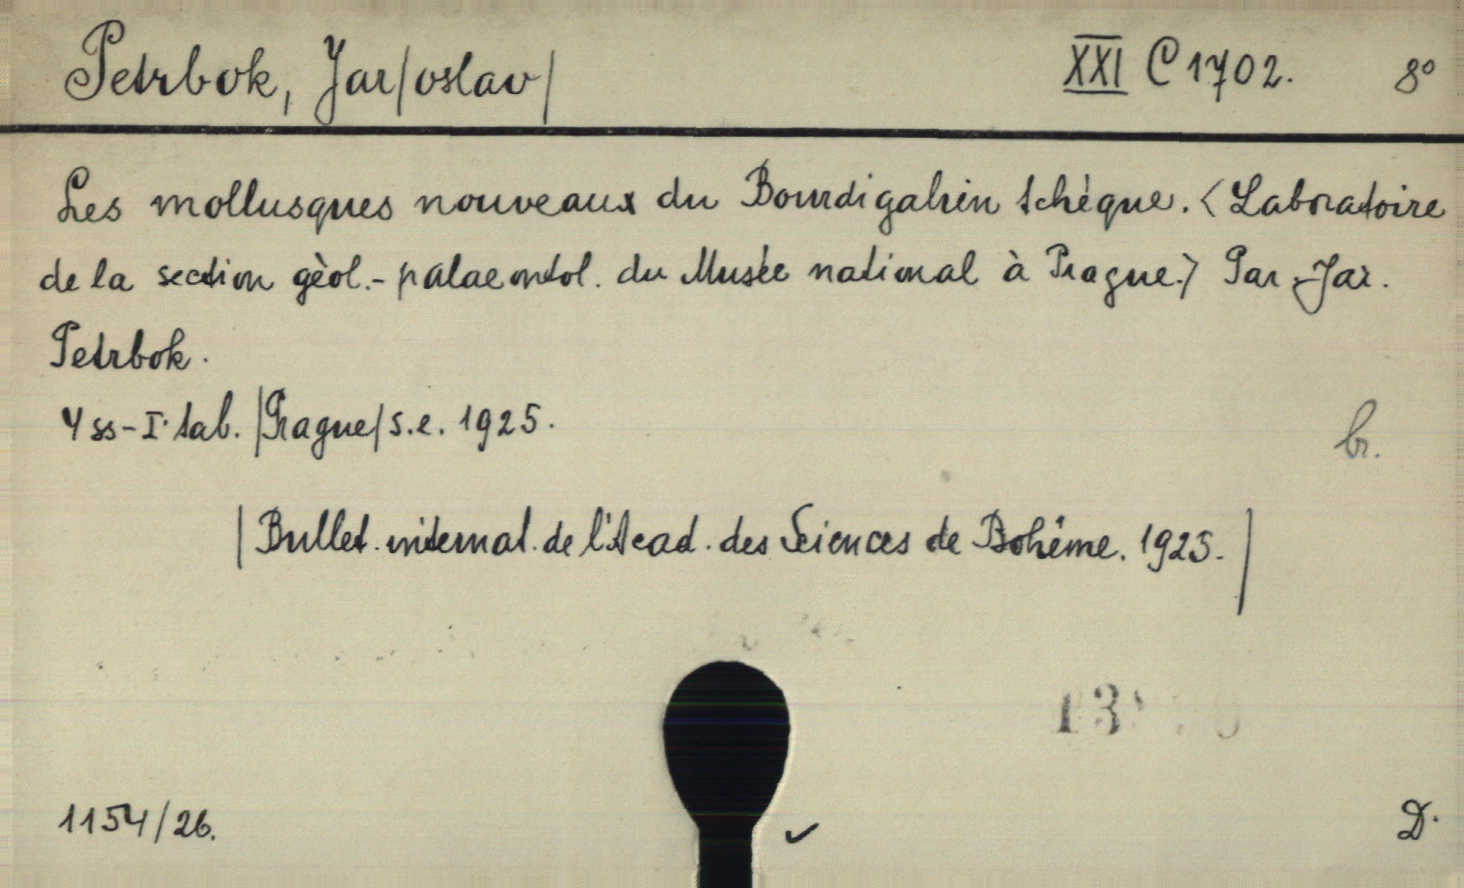 Petrbok, Jar/oslav/ XXI C 1702. 8°
Les mollusques nouveaux du Bourdigalien tchèque. <Laboratoire
de la section gèol.-palaeontol. du Musée national à Prague.> Par Jar.
Petrbok.
4 ss-I tab. /Prague/ s.e. 1925.
br.
/Bullet. internat. de l'Acad. des Sciences de Bohême. 1925./
1154/26.
D.